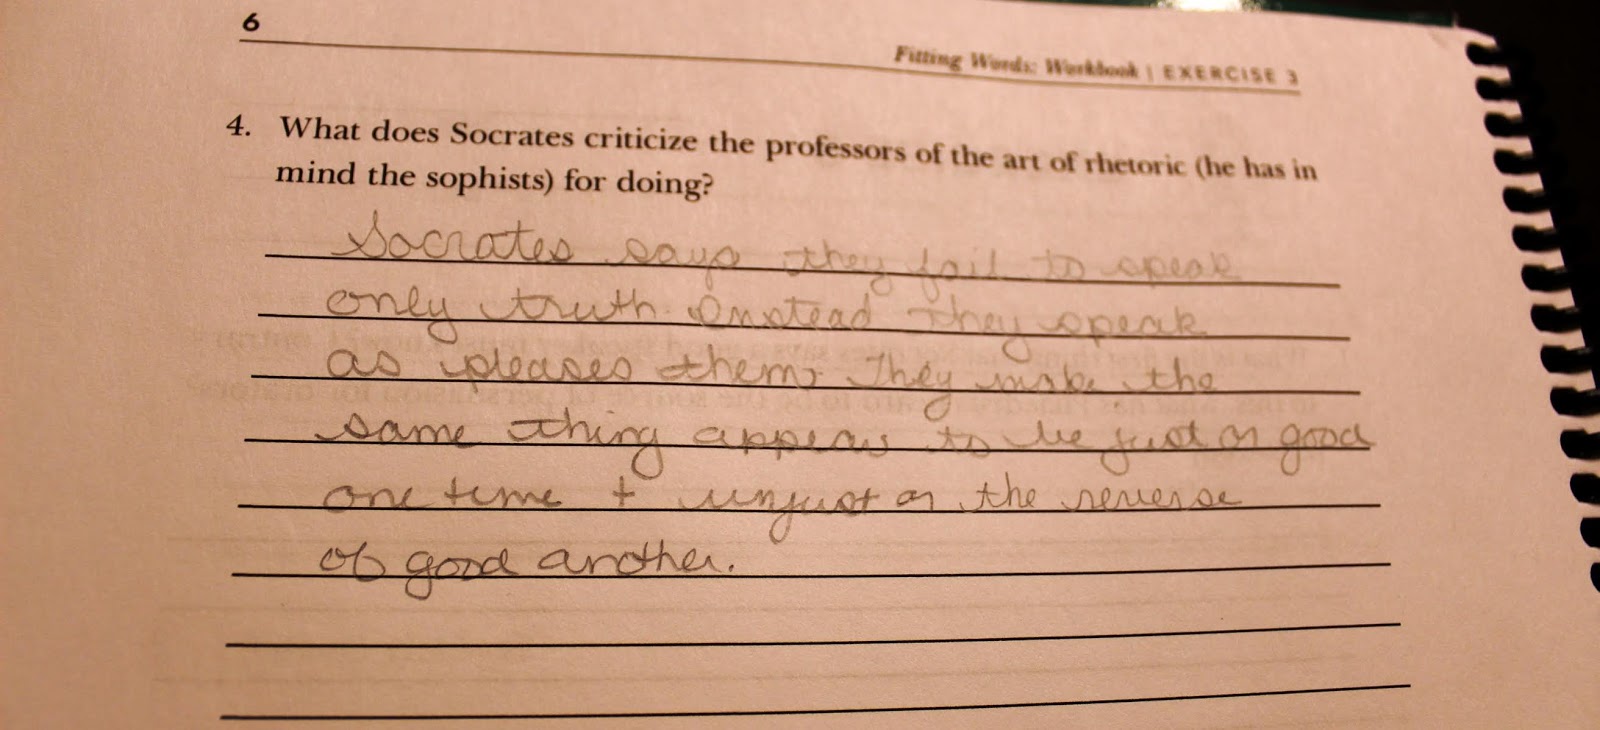 6
Fitting Words: Workbook | EXERCISE 3
4. What does Socrates criticize the professors of the art of rhetoric (he has in
mind the sophists) for doing?
Socrates says they fail to speak
only truth. Instead they speak
as pleases them. They make the
same thing appear to be just or good
one time + unjust or the reverse
of good another.